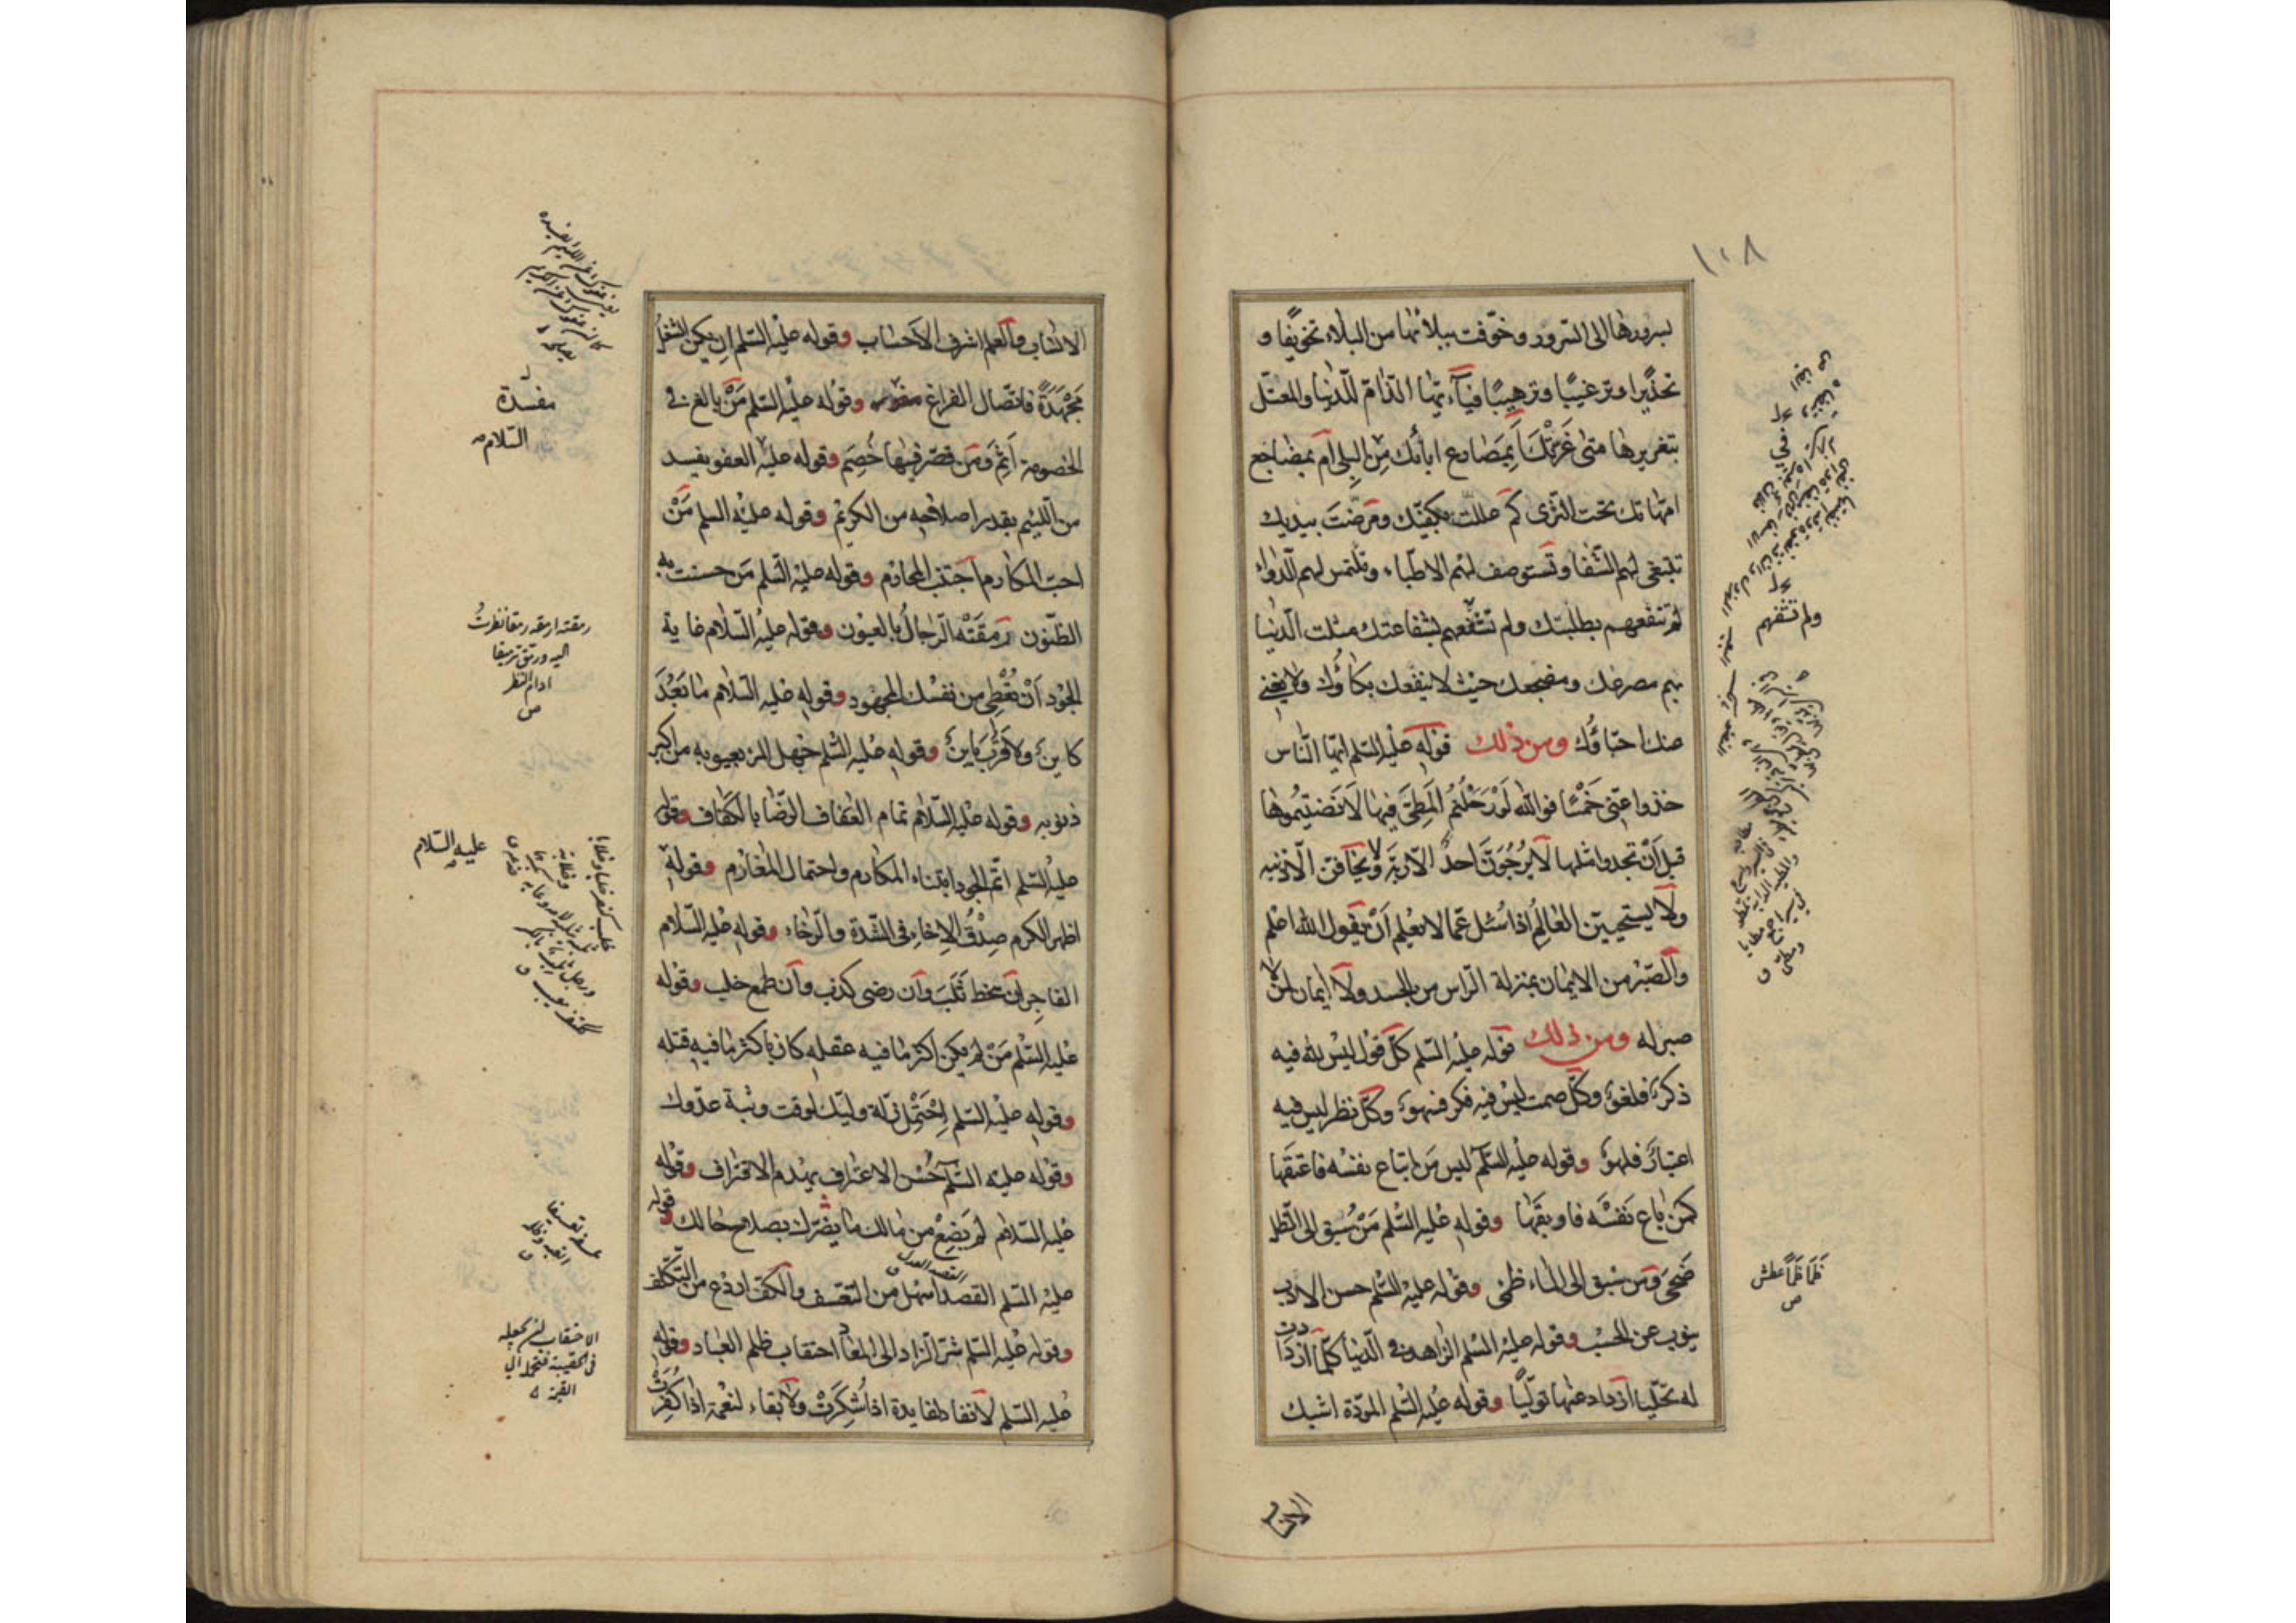 ١٠٨
بسرورها الى السرور وخوّفت ببلائها من البلاء تخويفا و
تحذيرا وترغيبًا وترهيبًا فيا أيها الذامّ للدنيا والمعتلّ
بتغريرها متى غرّتك أبمصارع ابائك من البلى أم بمضاجع
امهاتك تحت الثرى كم عللت بكفيّك ومرّضت بيديك
تبتغى لهم الشفا وتستوصف لهم الاطباء وتلتمس لهم الدواء
لم تنفعهم بطلبتك ولم تشفّعهم بشفاعتك مثلت الدنيا
بهم مصرعك ومضجعك حيث لا ينفعك بكاؤك ولا يغنى
عنك احباؤك ومن ذلك قوله عليه السلم ايها الناس
خذوا عنى خمسًا فوالله لو رحلتم المطىّ فيها لانضيتموها
قبل أن تجدوا مثلها لا يرجونّ احدٌ الا ربّه ولا يخافنّ الا ذنبه
ولا يستحيينّ العالم اذا سُئل عما لا يعلم أن يقول الله اعلم
والصبر من الايمان بمنزلة الراس من الجسد ولا ايمان لمن لا
صبر له ومن ذلك قوله عليه السلم كلّ قول ليس لله فيه
ذكرٌ فلغوٌ وكلّ صمت ليس فيه فكر فسهوٌ وكلّ نظر ليس فيه
اعتبارٌ فلهوٌ وقوله عليه السلم ليس من ابتاع نفسه فاعتقها
كمن باع نفسه فاوبقها وقوله عليه السلم من سُبق الى الظل
ضحى ومن سُبق الى الماء ظمى وقوله عليه السلم حسن الادب
ينوب عن الحسب وقوله عليه السلم الزاهد فى الدنيا كلّما ازدادت
له تحلّيا ازداد عنها تولّيًا وقوله عليه السلم المودّة اشبك
ولم تشفهم
ظمأ ظمأ عطش
ص
الانساب والعلم اشرف الاحساب وقوله عليه السلم ان يكن الشغل
مجهدةً فاتصال الفراغ مفسدة وقوله عليه السلم مَنْ بالغ فى
الخصومة أثم ومن قصر فيها خُصم وقوله عليه العفو يفسد
من اللئيم بقدر اصلاحه من الكريم وقوله عليه السلم مَنْ
احب المكارم اجتنب المحارم وقوله عليه السلم من حسنت به
الظنون رمقته الرجال بالعيون وقوله عليه السلام غاية
الجود أنْ تُعْطى من نفسك المجهود وقوله عليه السلام ما بَعُدَ
كاينٌ ولا قرب باينٌ وقوله عليه السلم جهل المرء بعيوبه من اكبر
ذنوبه وقوله عليه السلام تمام العفاف الرضا بالكفاف وقوله
عليه السلم اتم الجود ابتناء المكارم واحتمال المغارم وقوله
اظهر الكرم صِدْقُ الإخاء فى الشدة والرخاء وقوله عليه السلام
الفاجر ان سخط ثَلَبَ وان رضى كذب وان طمع خلب وقوله
عليه السلم مَنْ لم يكن اكثر ما فيه عقله كان باكثر ما فيه قتله
وقوله عليه السلم اِحْتَمِل زلّة وليّك لوقت وثبة عدوّك
وقوله عليه السلم حُسْن الاعتراف يهدم الاقتراف وقوله
عليه السلام لم يَضِعْ من مالك ما بصّرك بصلاح حالك وقوله
عليه السلم القصد اسهل من التعسف والكفّ اودع من التكلف
وقوله عليه السلم شرّ الزاد الى المعاد احتقاب ظلم العباد وقوله
عليه السلم لا نفاد لفايدة اذا شُكِرَتْ ولا بقاء لنعمة اذا كُفِرَتْ
مفسدة
السلام
رمقته ارمقه رمقا نظرت
اليه ورمّق ترميقا
ادام النظر
ص
عليه السلام
الاحتقاب
القصد العدل